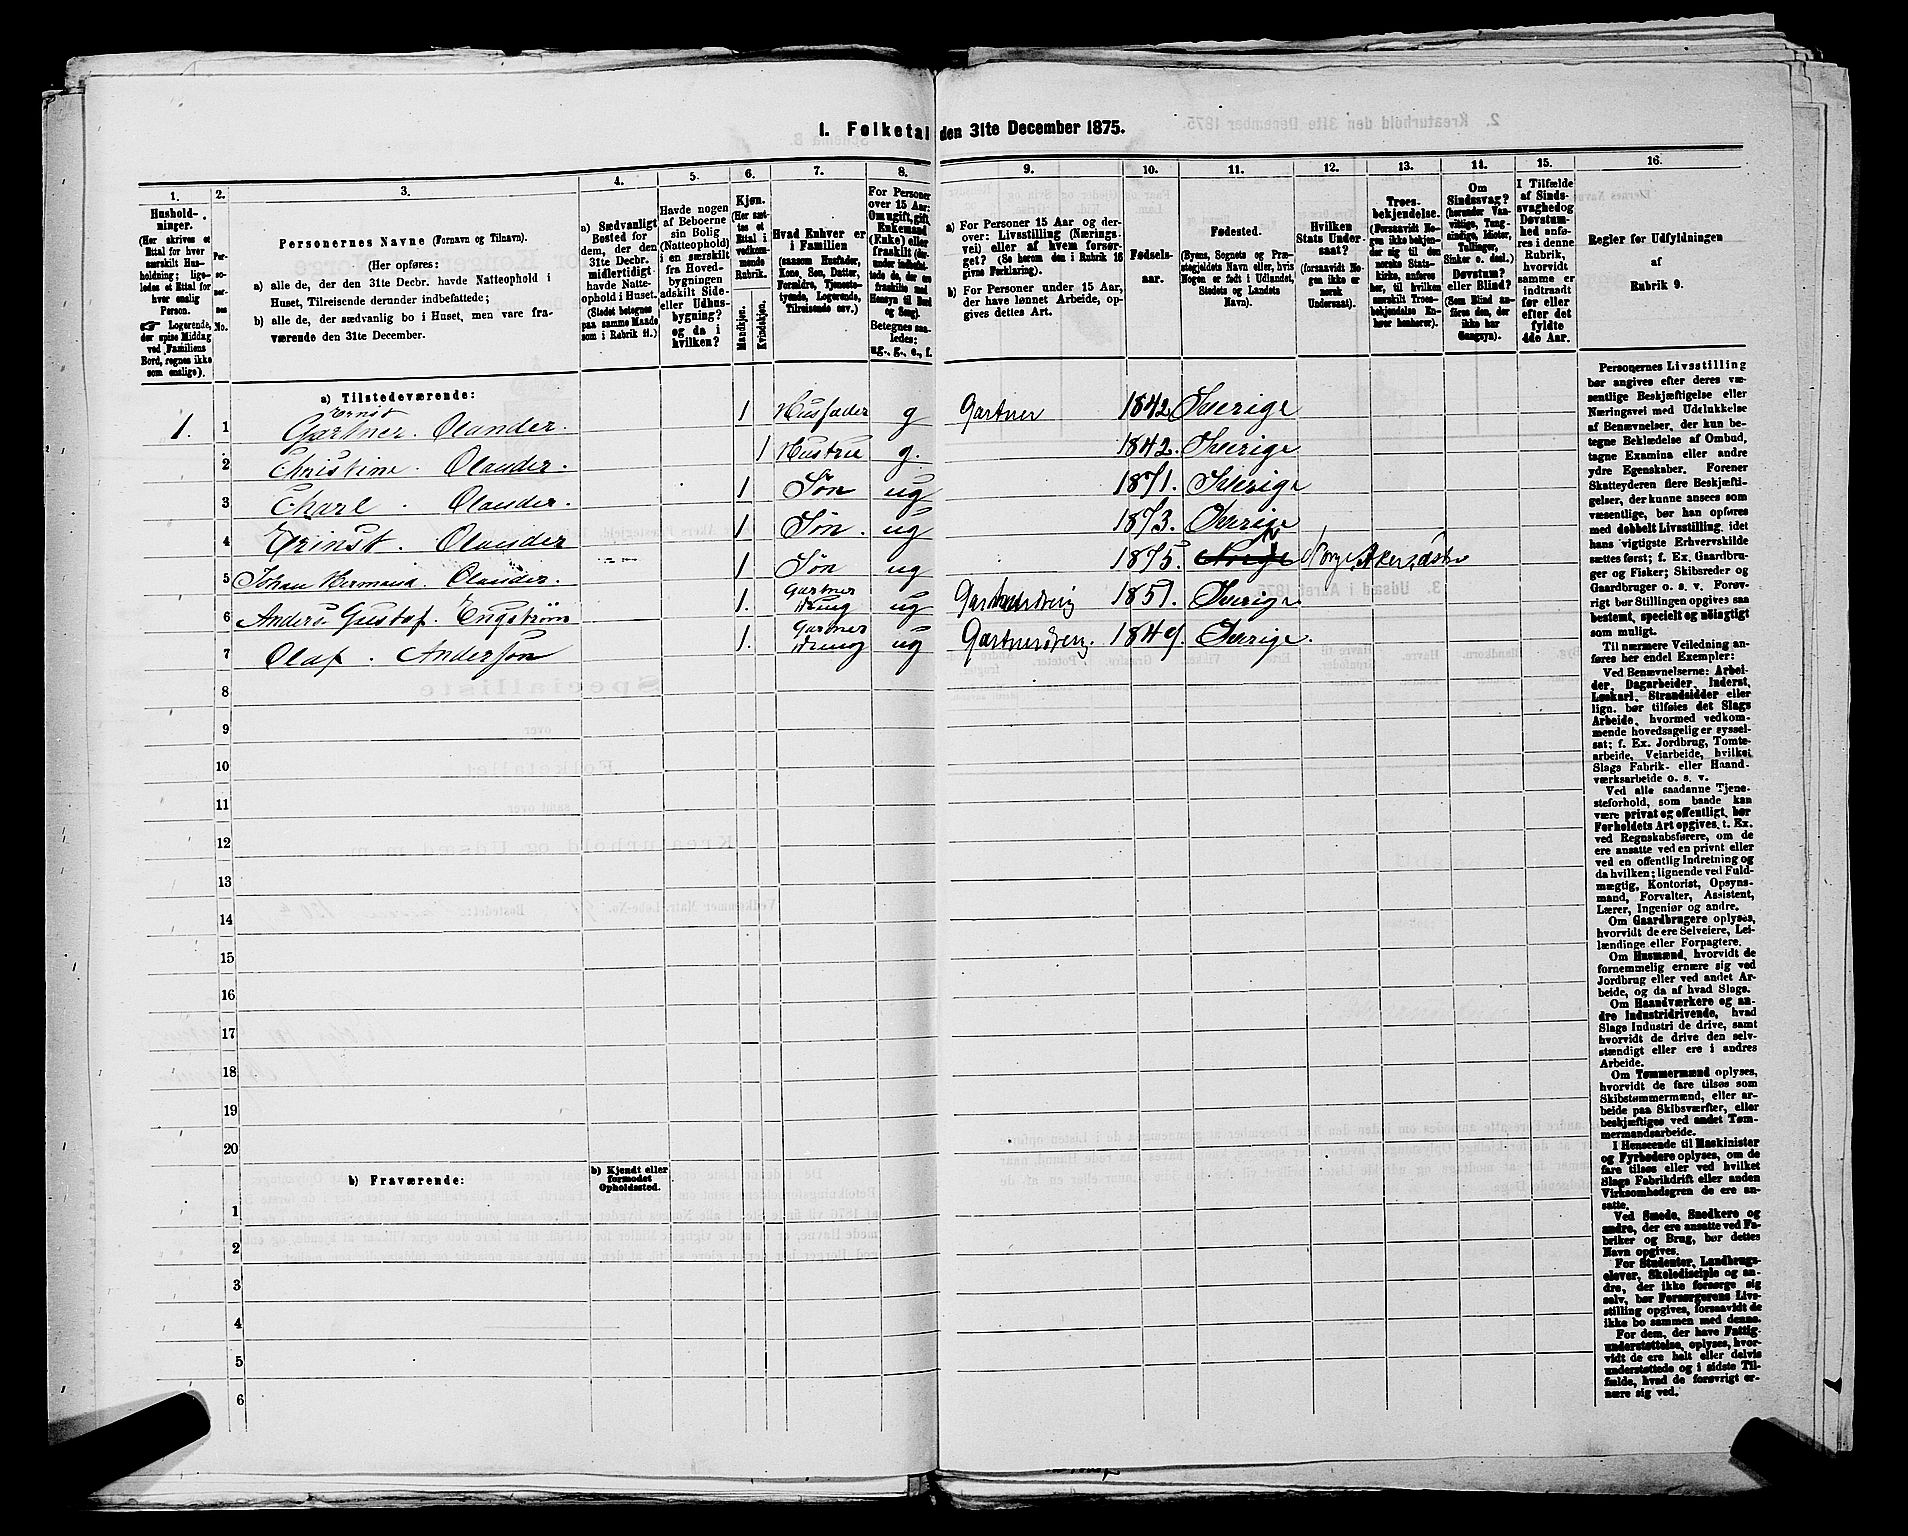 1. Folketal den 31te December 1875.
1. 2. 3. 4. 5. 6. 7. 8. 9. 10. 11. 12. 13. 14. 15. 16.
Hushold-
ninger.
(Her skrives et
Ettal for hver
særskilt Hus-
holdning; lige-
ledes et Ettal for
hver enslig
Person.
☞ Logerende,
der spise Middag
ved Familiens
Bord, regnes ikke
som enslige).
Per-
so-
ner-
nes
No.
Personernes Navne (Fornavn og Tilnavn).
(Her opføres:
a) alle de, der den 31te Decbr. havde Natteophold i
Huset, Tilreisende derunder indbefattede;
b) alle de, der sædvanlig bo i Huset, men vare fra-
værende den 31te December.
a) Sædvanligt
Bosted for
dem, der den
31te Decbr.
midlertidigt
havde Natte-
ophold i Huset.
(Stedet betegnes
paa samme Maade
som i Rubrik 11.)
Havde nogen
af Beboerne
sin Bolig
(Natteophold)
i en særskilt
fra Hoved-
bygningen
adskilt Side-
eller Udhus-
bygning?
og da i
hvilken?
Kjøn.
(Her sæt-
tes et
Ettal i
vedkom-
mende
Rubrik.
Mandkjøn.
Kvindekjøn.
Hvad Enhver er
i Familien
(saasom Husfader,
Kone, Søn, Datter,
Forældre, Tjeneste-
tyende, Logerende,
Tilreisende osv.)
For Personer
over 15 Aar:
Om ugift, gift,
Enkemand
(Enke) eller
fraskilt (der-
under indbefat-
tede de, der ere
fraskilte med
Hensyn til Bord
og Seng).
Betegnes saa-
ledes:
ug., g., e., f.
a) For Personer 15 Aar og der-
over: Livsstilling (Nærings-
vei) eller af hvem forsør-
get? (Se herom den i Rubrik 16
givne Forklaring).
b) For Personer under 15 Aar,
der have lønnet Arbeide, op-
gives dettes Art.
Fødsels-
aar.
Fødested.
(Byens, Sognets og Præ-
stegjeldets Navn eller, hvis
Nogen er født i Udlandet,
Stedets og Landets
Navn).
Hvilken
Stats Under-
saat?
(forsaavidt No-
gen ikke er
norsk
Undersaat).
Troes-
bekjendelse.
(Forsaavidt No-
gen ikke bekjen-
der sig til den
norske Stats-
kirke, anføres
her, til hvilken
særskilt Troes-
bekjendelse En-
hver henhører).
Om
Sindssvag?
(herunder Van-
vittige, Tung-
sindige, Idioter,
Tullinger,
Sinker o. desl.)
Døvstum?
eller Blind?
(Som Blind an-
føres den, der
ikke har
Gangsyn).
I Tilfælde
af Sinds-
svaghed og
Døvstum-
hed anfø-
res i denne
Rubrik,
hvorvidt
samme er
indtraadt
før eller
efter det
fyldte
4de Aar.
Regler før Udfyldningen
af
Rubrik 9.
a) Tilstedeværende:
1. 1 Ernst Gartner. Olander. 1 Husfader g Gartner 1842 Sverige
2 Christine. Olander. 1 Hustru g. 1842. Sverige
3 Charl. Olander. 1 Søn ug 1871. Sverige
4 Ernst. Olander 1 Søn. ug 1873. Sverige
5 Johan Hermand. Olander. 1 Søn ug 1875. Norge, Aker,
6 Anders Gustaf. Engstrøm 1. Gartner dreng ug Gartnerdreng 1851. Sverige
7 Olaf. Anderson 1. Gartner dreng ug Gartnerdreng. 1849. Sverige.
8
9
10
11
12
13
14
15
16
17
18
19
20
b) Fraværende:
b) Kjendt eller
formodet
Opholdssted.
1
2
3
4
5
6
Personernes Livsstilling
bør angives efter deres væ-
sentlige Beskjæftigelse eller
Næringsvei med Udelukkelse
af Benævnelser, der kun be-
tegne Beklædelse af Ombud,
tagne Examina eller andre
ydre Egenskaber. Forener
Skatteyderen flere Beskjæfti-
gelser, der kunne ansees som
væsentlige, bør han opføres
med dobbelt Livsstilling, idet
hans vigtigste Erhvervskilde
sættes først; f. Ex. Gaardbru-
ger og Fisker; Skibsreder og
Gaardbruger o. s. v. Forøv-
rigt bør Stillingen opgives saa
bestemt, specielt og nøiagtigt
som muligt.
Til nærmere Veiledning an-
føres her endel Exempler:
Ved Benævnelserne: Arbei-
der, Dagarbeider, Inderst,
Løskarl, Strandsidder eller
lign. bør tilføies det Slags
Arbeide, hvormed vedkom-
mende hovedsagelig er syssel-
sat; f. Ex. Jordbrug, Tomte-
arbeide, Veiarbeide, hvilket
Slags Fabrik- eller Haand-
værksarbeide o. s. v.
Ved alle saadanne Tjene-
steforhold, som baade kan
være privat og offentligt, bør
Forholdets Art opgives, t. Ex.
ved Regnskabsførere, om de
ere ansatte ved en privat eller
ved en offentlig Indretning og
da hvilken; lignende ved Fuld-
mægtig, Kontorist, Opsyns-
mand, Forvalter, Assistent,
Lærer, Ingeniør og andre.
Om Gaardbrugere oplyses,
hvorvidt de ere Selveiere, Lei-
lændinge eller Forpagtere.
Om Husmænd, hvorvidt de
fornemmelig ernære sig ved
Jordbrug eller ved andet Ar-
beide, og da af hvad Slags.
Om Haandværkere og an-
dre Industridrivende, hvad
Slags Industri de drive, samt
hvorvidt de drive den selv-
stændigt eller ere i andres
Arbeide.
Om Tømmermænd oplyses,
hvorvidt de fare tilsøs som
Skibstømmermænd, eller ar-
beide paa Skibsværfter, eller
beskjæftiges ved andet Tøm-
mermandsarbeide.
I Henseende til Maskinister
og Fyrbødere oplyses, om de
fare tilsøs eller ved hvilket
Slags Fabrikdrift eller anden
Virksomhedsgren de ere an-
satte.
Ved Smede, Snedkere og
andre, der ere ansatte ved Fa-
briker og Brug, bør dettes
Navn opgives.
For Studenter, Landbrugs-
elever, Skoledisciple og an-
dre, der ikke forsørge sig
selv, bør Forsørgerens Livs-
stilling opgives, forsaavidt de
ikke bo sammen med denne.
For dem, der have Fattig-
understøttelse, oplyses, hvor-
vidt de ere helt eller delvis
understøttede og i sidste Til-
fælde, hvad de forøvrigt er-
nære sig ved.